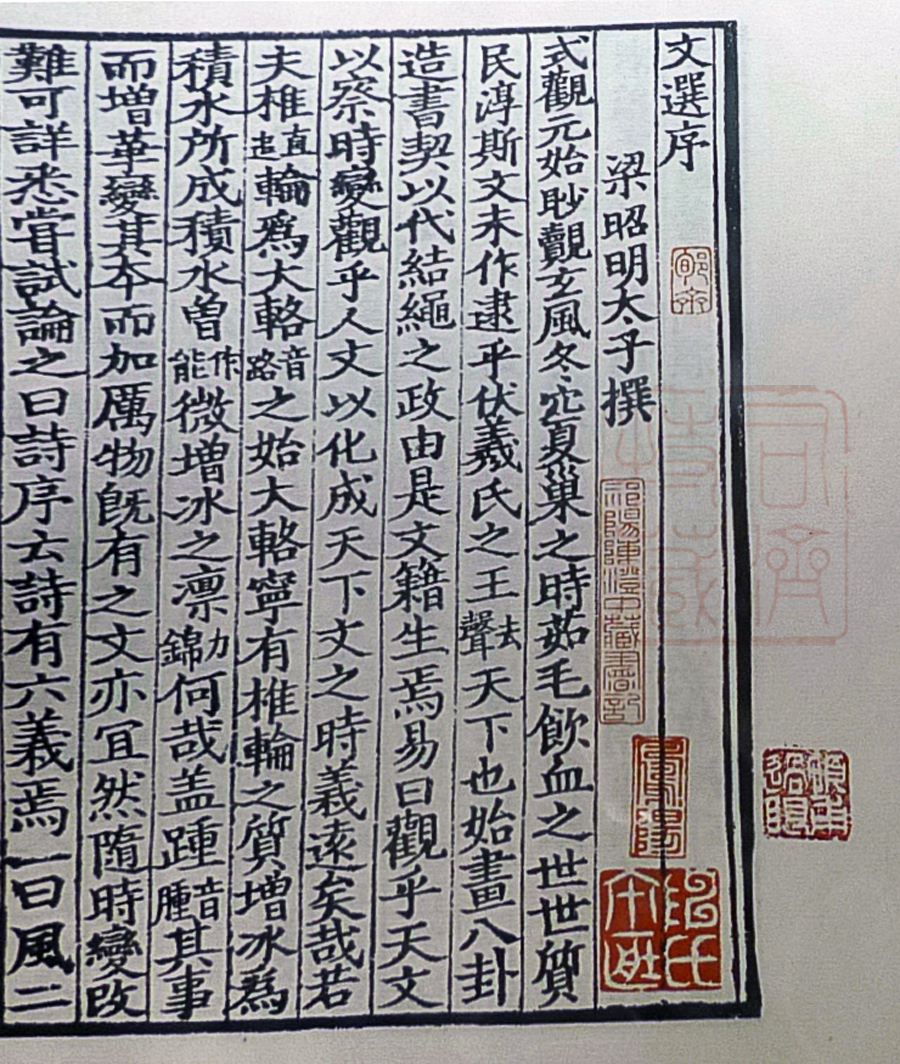 文選序
梁昭明太子撰
式觀元始眇覿玄風冬穴夏巢之時茹毛飲血之世世質
民淳斯文未作逮乎伏羲氏之王去聲天下也始畫八卦
造書契以代結繩之政由是文籍生焉易曰觀乎天文
以察時變觀乎人文以化成天下文之時義遠矣哉若
夫椎直追輪爲大輅音路之始大輅寧有椎輪之質增冰爲
積水所成積水曽作能微增冰之凛力錦何哉盖踵音腫其事
而增華變其本而加厲物旣有之文亦宜然隨時變改
難可詳悉甞試論之曰詩序云詩有六義焉一曰風二
祁陽陳澄中藏書記